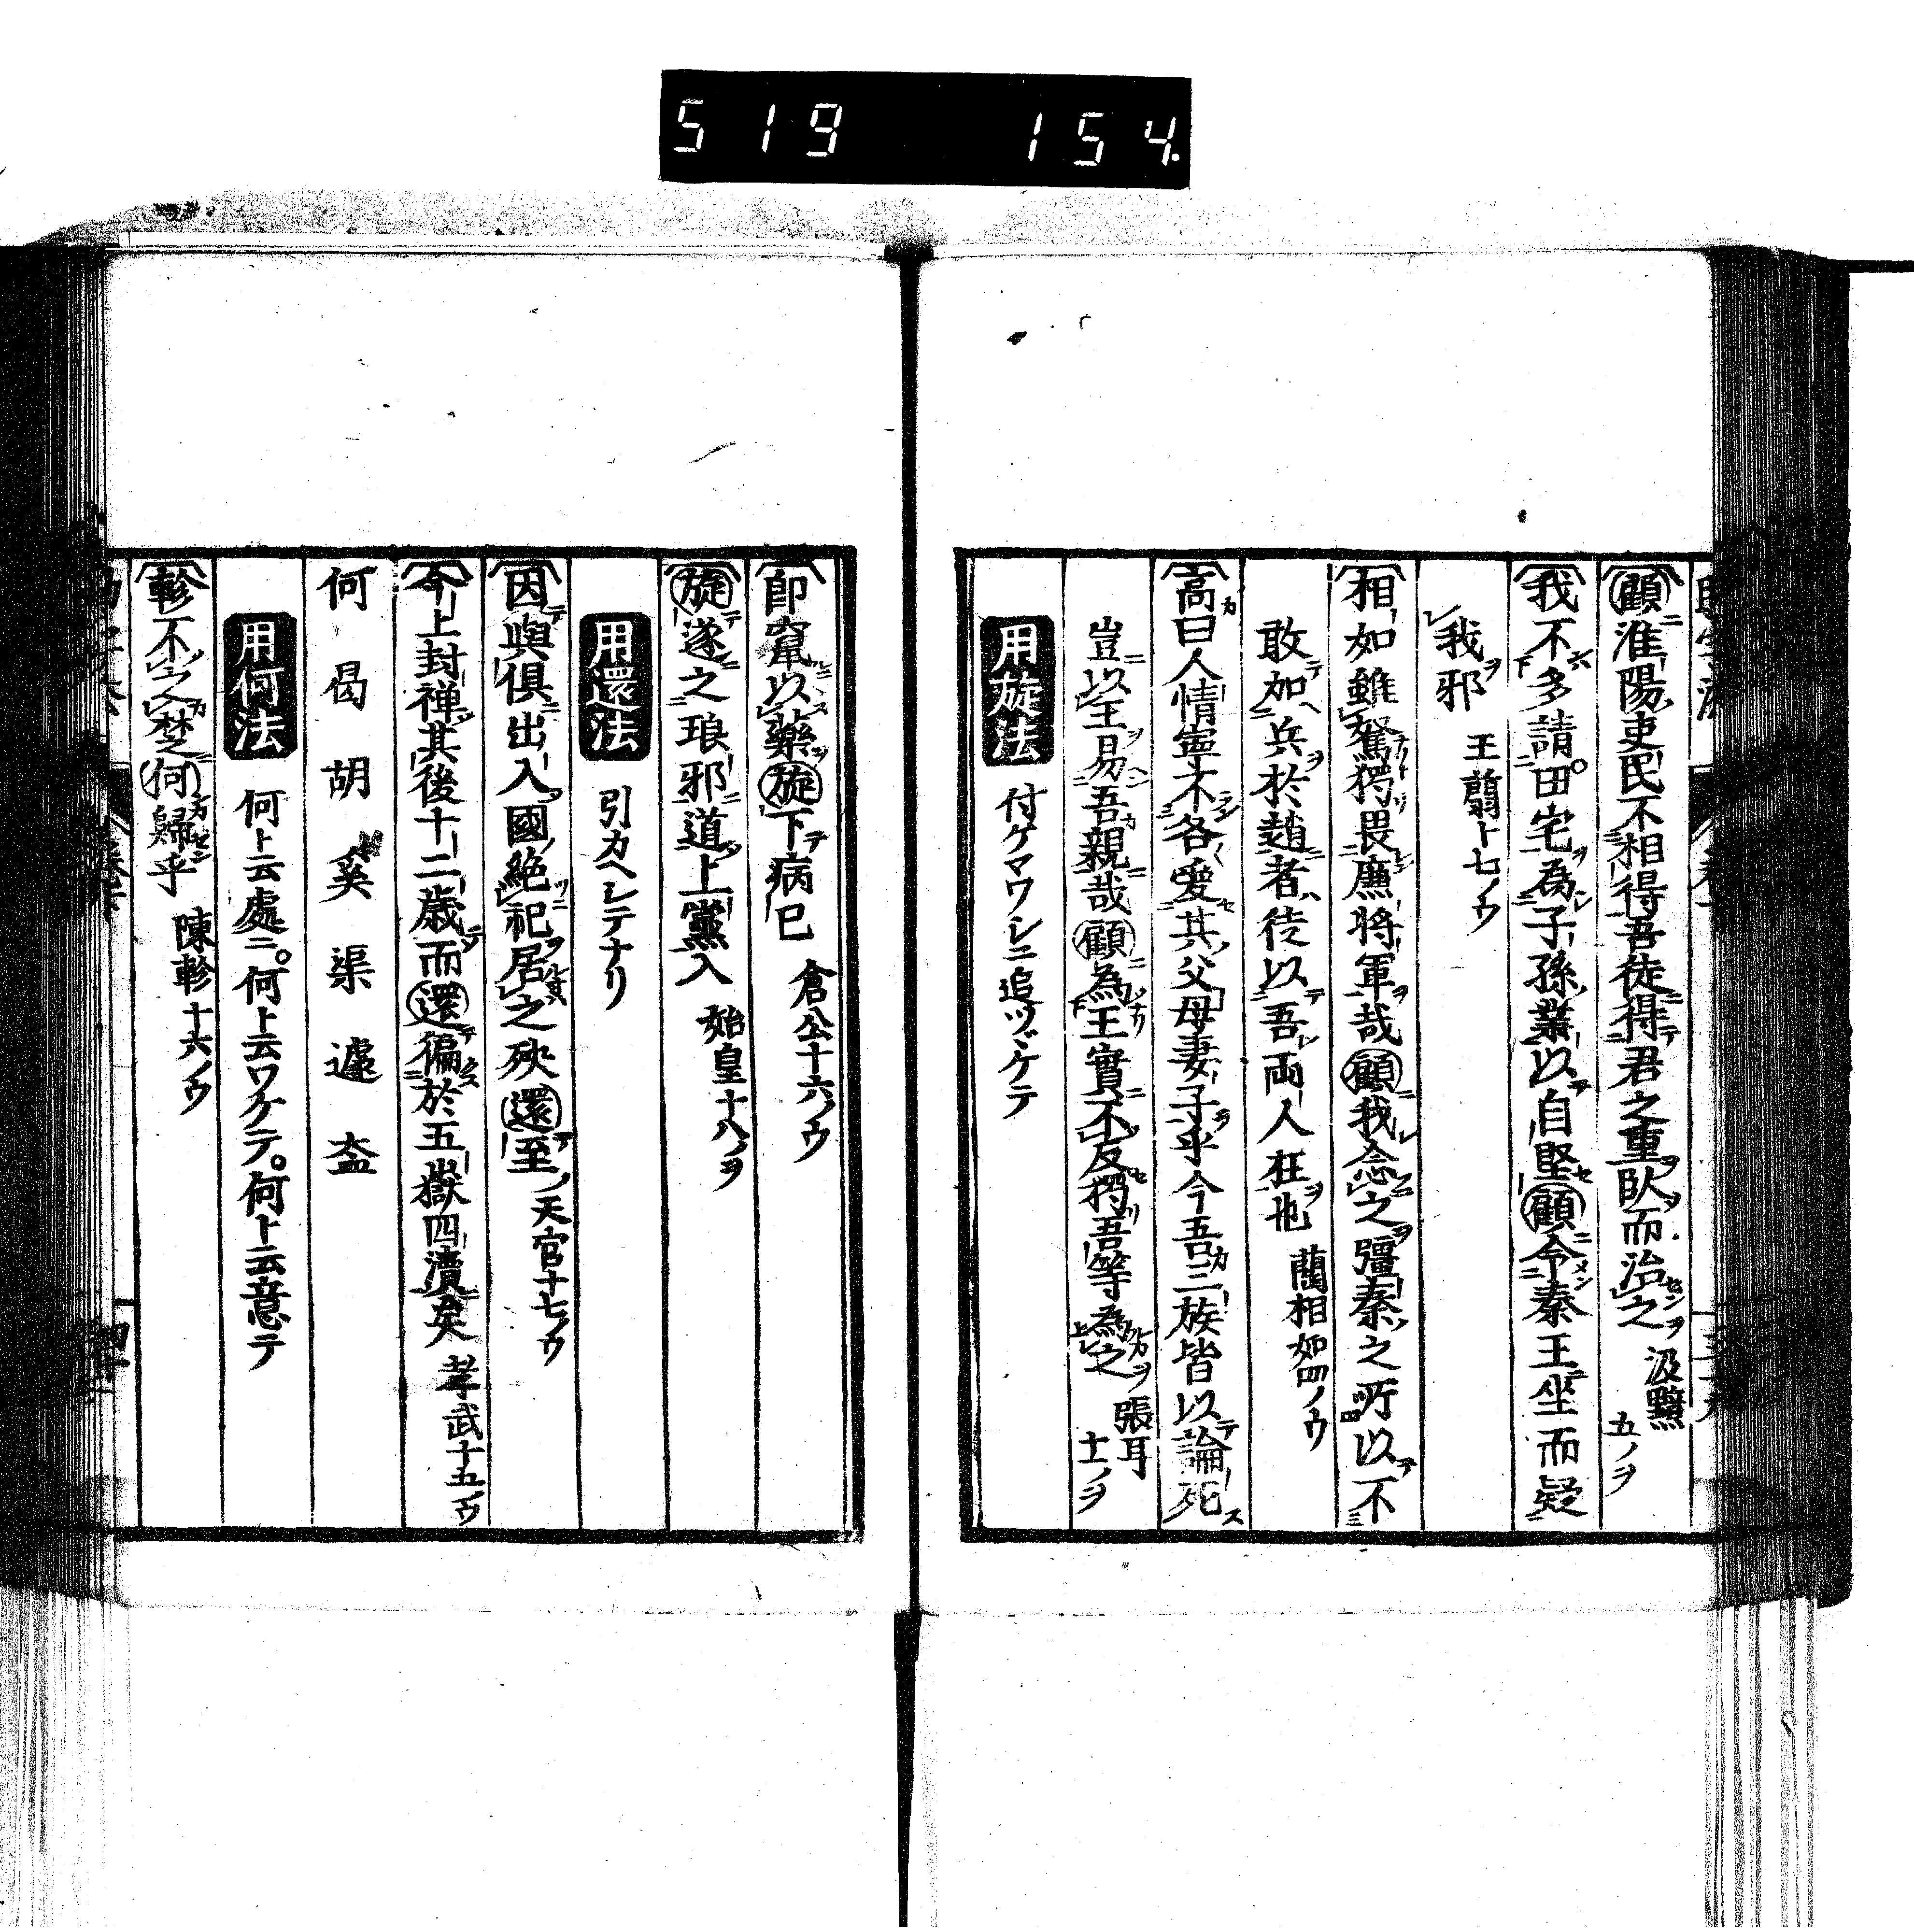 519 154.
顧淮陽吏民不相得吾徒得君之重臥而治之 汲黯五ノヲ
我不多請田宅為子孫業以自堅顧令秦王坐而疑
我邪 王翦十七ノウ
相如雖駑獨畏廉將軍哉顧我念之彊秦之所以不
敢加兵於趙者徒以吾両人在也 藺相如四ノウ
高曰人情寧不各愛其父母妻子乎今吾三族皆以論死
豈以王易吾親哉顧為王實不反獨吾等為之 張耳十一ノヲ
用旋法 付ケマワシニ追ツヾケテ
即竄以藥旋下病已 倉公十六ノウ
旋遂之琅邪道上黨入 始皇十八ノヲ
用還法 引カヘシテナリ
因與俱出入國絶祀居之殃還至 天官十七ノウ
今上封禅其後十二歳而還徧於五嶽四瀆矣 孝武十五ノウ
何曷胡奚渠遽盍
用何法 何ト云處ニ。何ト云ワケテ。何ト云意テ
軫不之楚何歸乎 陳軫十六ノウ